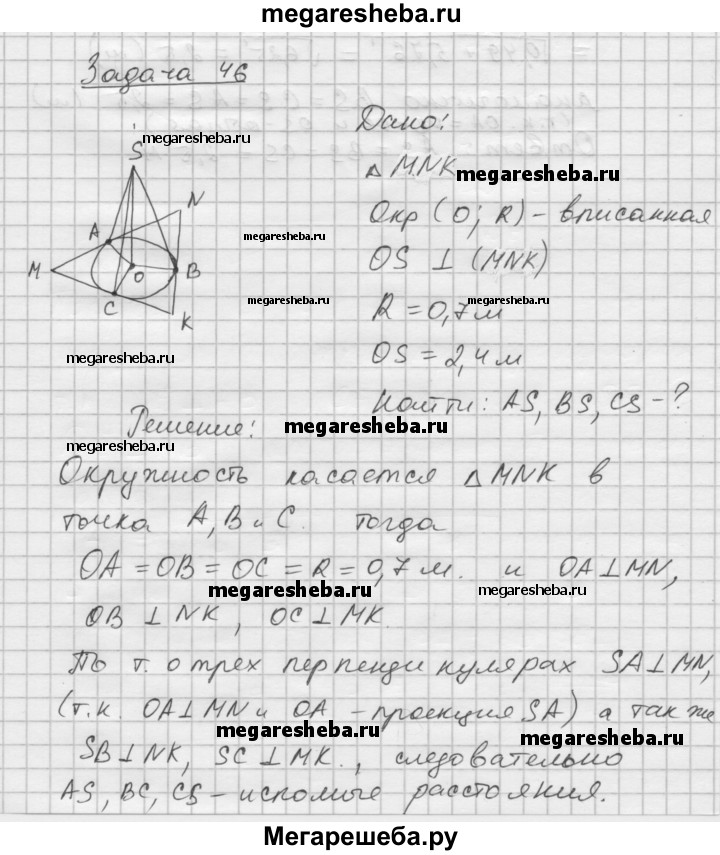 megaresheba.ru
Задача 46
Дано:
megaresheba.ru
S
△ MNK
megaresheba.ru
N
Окр (О; R) – вписанная
A
megaresheba.ru
OS ⊥ (MNK)
M
O
B
C
megaresheba.ru
megaresheba.ru
R = 0,7 м
K
megaresheba.ru
OS = 2,4 м
Найти: AS, BS, CS – ?
Решение:
megaresheba.ru
megaresheba.ru
Окружность касается △ MNK в
точка A, B и C. тогда
OA = OB = OC = R = 0,7 м. и OA ⊥ MN,
megaresheba.ru
megaresheba.ru
OB ⊥ NK, OC ⊥ MK.
По т. о трех перпендикулярах SA ⊥ MN,
(т.к. OA ⊥ MN и OA – проекция SA) а так же
megaresheba.ru
megaresheba.ru
SB ⊥ NK, SC ⊥ MK., следовательно
AS, BC, CS – искомые расстояния.
Мегарешеба.ру